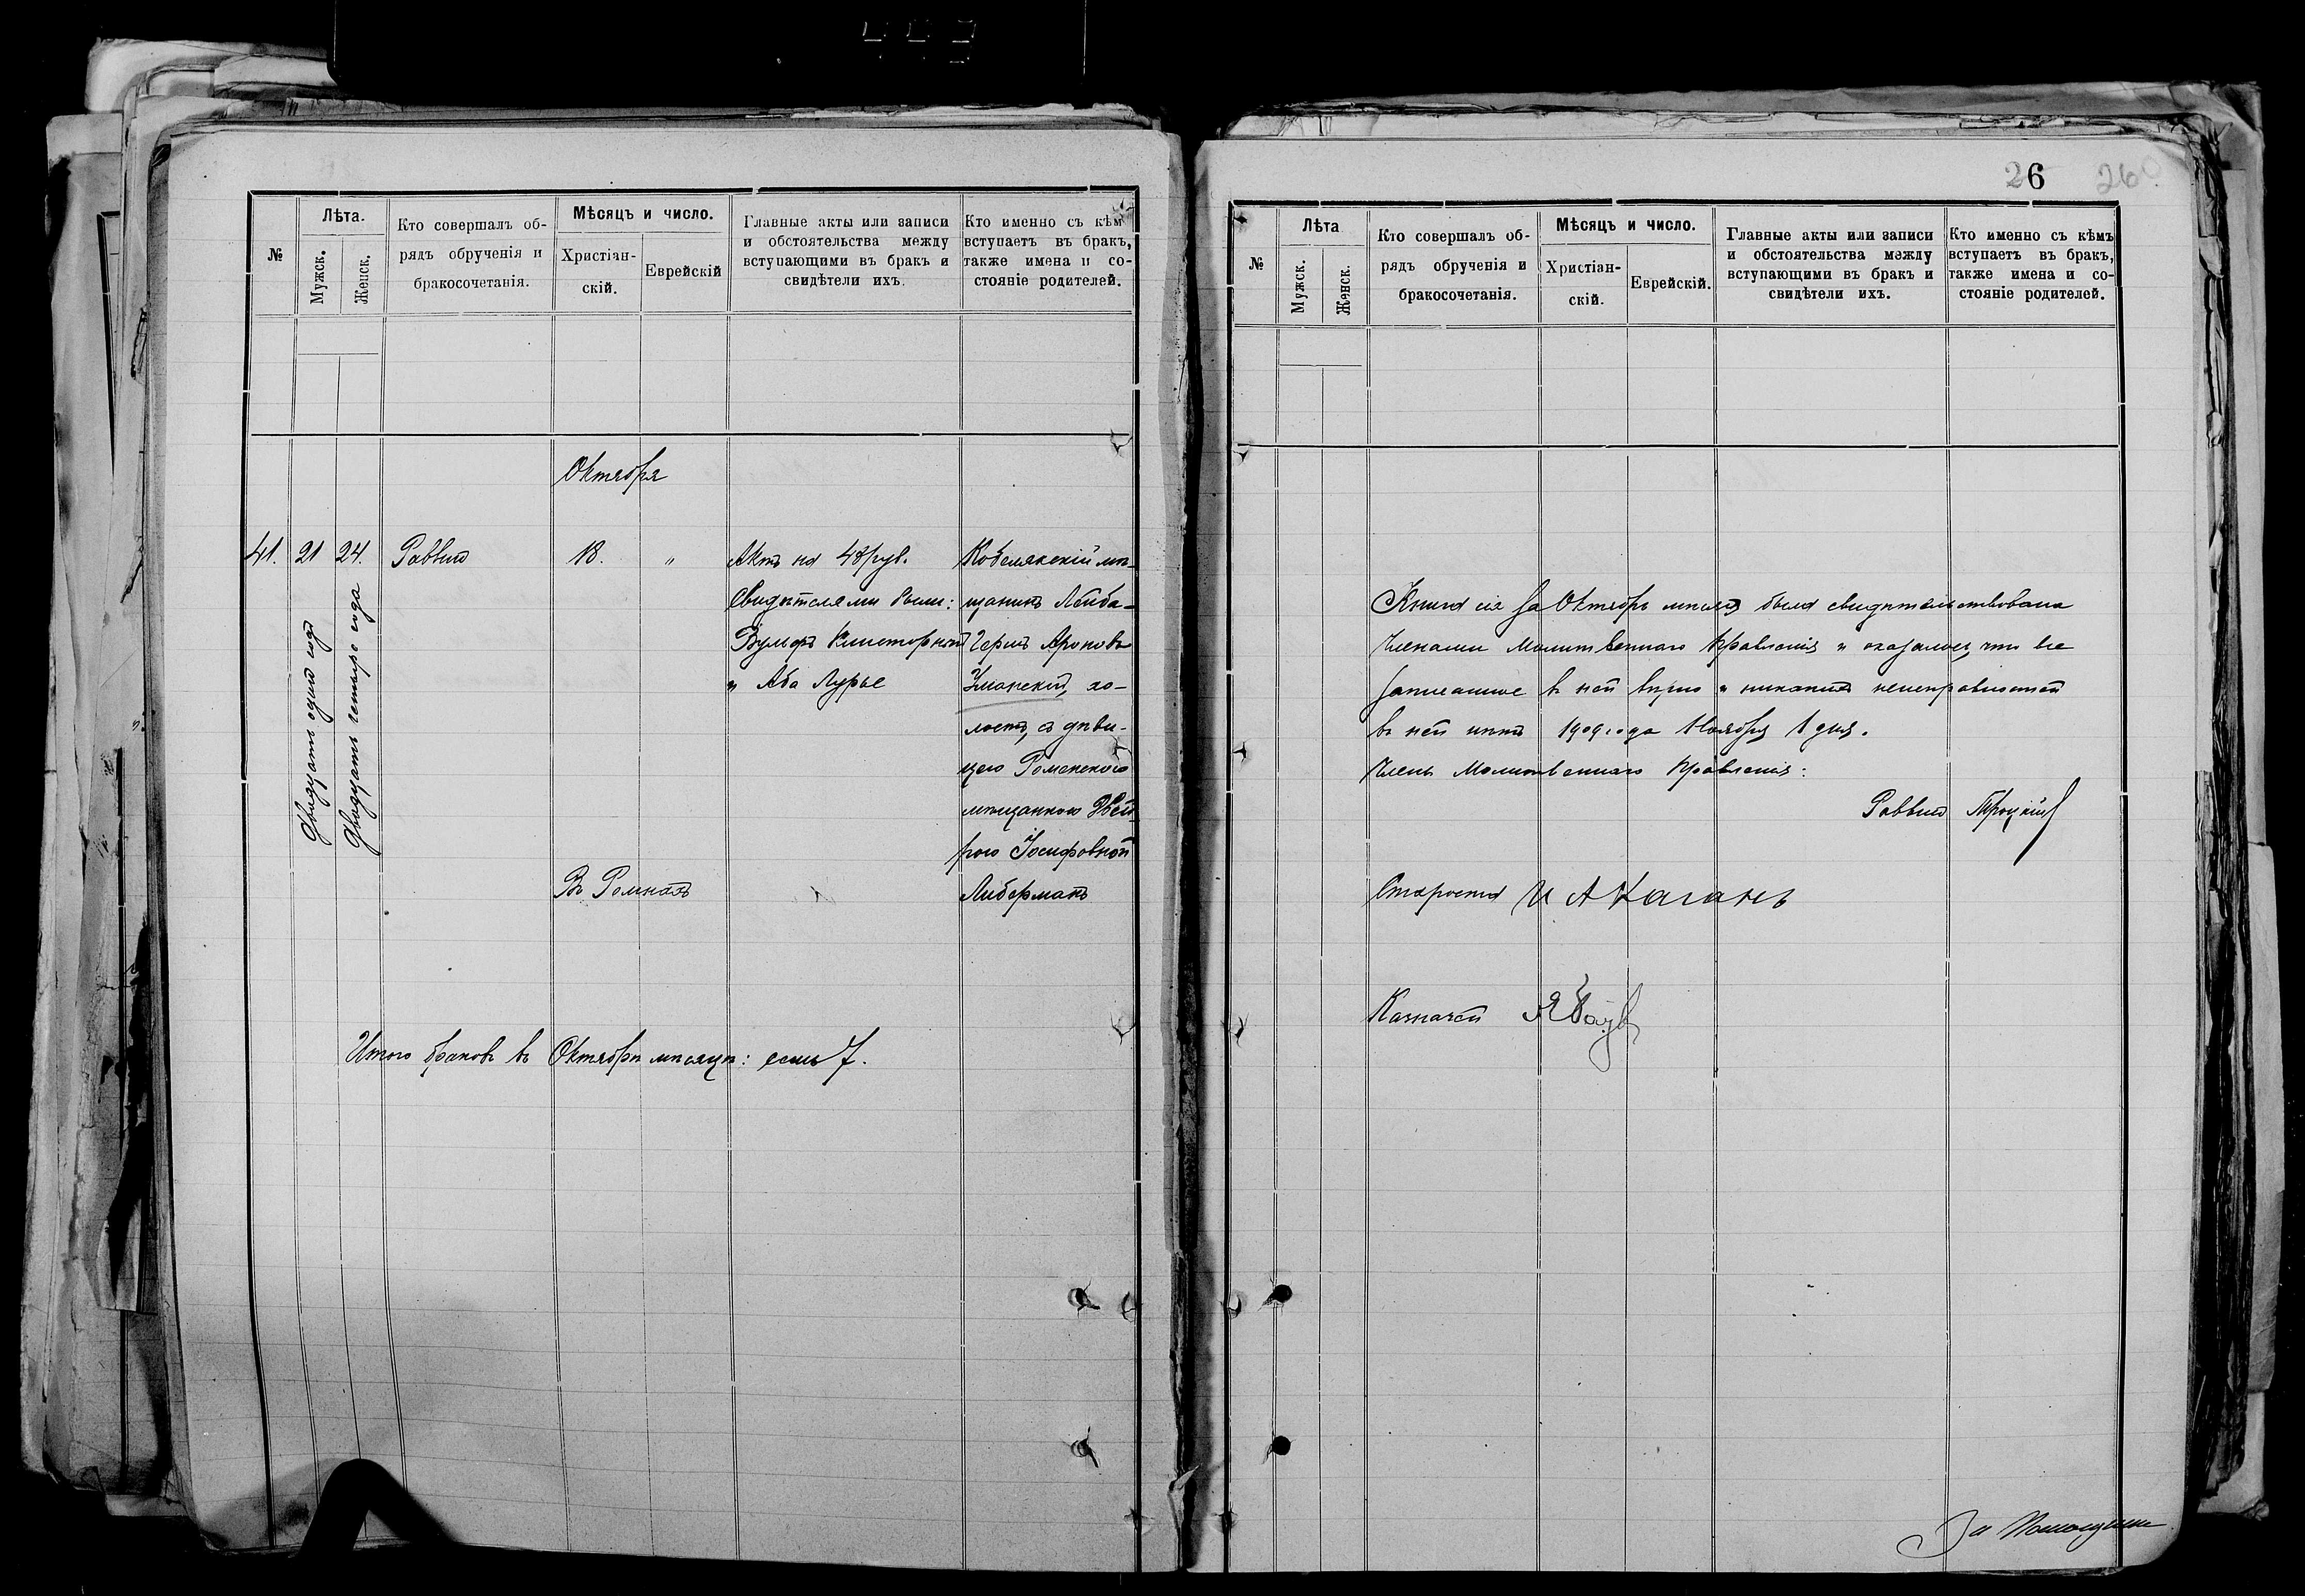 №
Лѣта.
Мужск.
Женск.
Кто совершалъ об-
рядъ обрученія и
бракосочетанія.
Мѣсяцъ и число.
Христіан-
скій.
Еврейскій
Главные акты или записи
и обстоятельства между
вступающими въ бракъ и
свидѣтели ихъ.
Кто именно съ кѣмъ
вступаетъ въ бракъ,
также имена и со-
стояніе родителей.
Октября
41.
21
Двадцать одинъ годъ
24.
Двадцать четыре года
Раввинъ
18.
"
Въ Ромнахъ
Актъ на 48 руб.
Свидѣтелями были:
Вульфъ
и Аба Лурье
Кобелякскій мѣ-
щанинъ Лейба-
Герцъ Ароновъ
Уманскій, хо-
лостъ, съ дѣви-
цею Роменскою
мѣщанкою
рою Іосифовной
Либерманъ
Итого браковъ въ Октябрѣ мѣсяцѣ: семь 7.
26
26
№
Лѣта
Мужск.
Женск.
Кто совершалъ об-
рядъ обрученія и
бракосочетанія.
Мѣсяцъ и число.
Христіан-
скій.
Еврейскій.
Главные акты или записи
и обстоятельства между
вступающими въ бракъ и
свидѣтели ихъ.
Кто именно съ кѣмъ
вступаетъ въ бракъ,
также имена и со-
стояніе родителей.
Книга сія за Октябрь мѣсяцъ была свидѣтельствована
Членами Молитвеннаго Правленія и оказалось, что все
записанное въ ней вѣрно и никакихъ неисправностей
въ ней нѣтъ 1909 года Ноября 1 дня.
Члены Молитвеннаго Правленія:
Раввинъ Троцкій
Староста И А Каганъ
Казначей
За